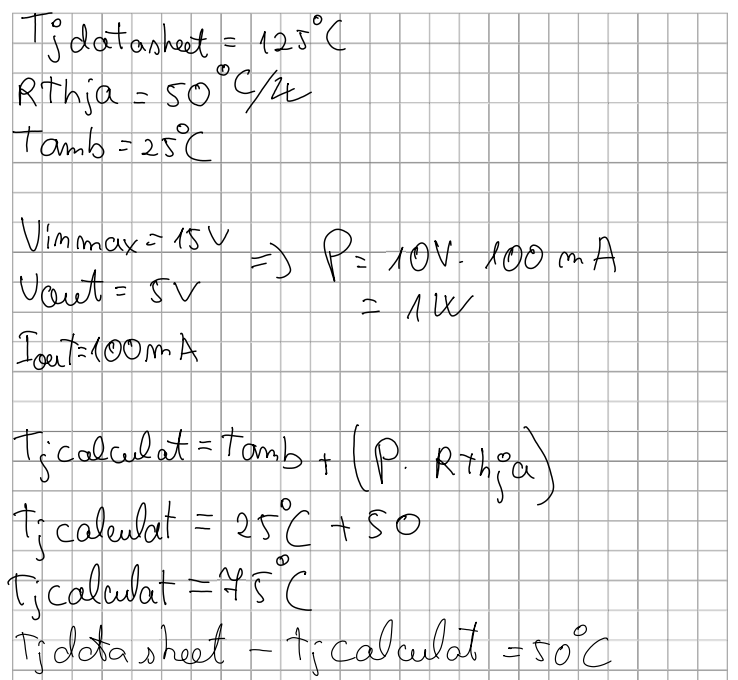 Tj datasheet = 125°C
Rthja = 50°C/W
Tamb = 25°C
Vinmax = 15V => P = 10V · 100 mA
Vout = 5V
= 1W
Iout = 100mA
Tj calculat = Tamb + (P · Rthja)
Tj calculat = 25°C + 50
Tj calculat = 75°C
Tj datasheet - Tj calculat = 50°C